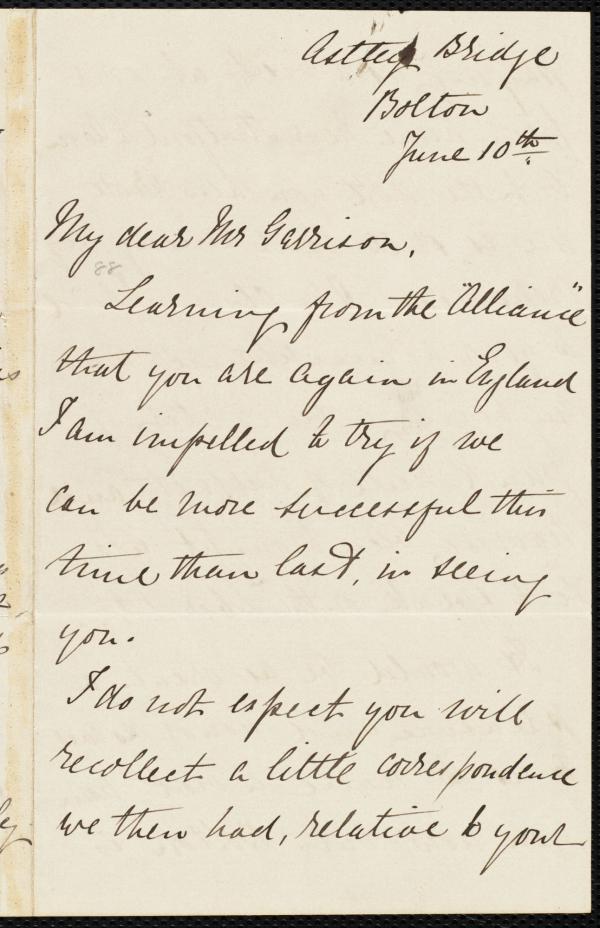 Astley Bridge
Bolton
June 10th
My dear Mr Garrison,
88
Learning from the "Alliance"
that you are again in England
I am impelled to try if we
can be more successful this
time than last, in seeing
you.
I do not expect you will
recollect a little correspondence
we then had, relative to your